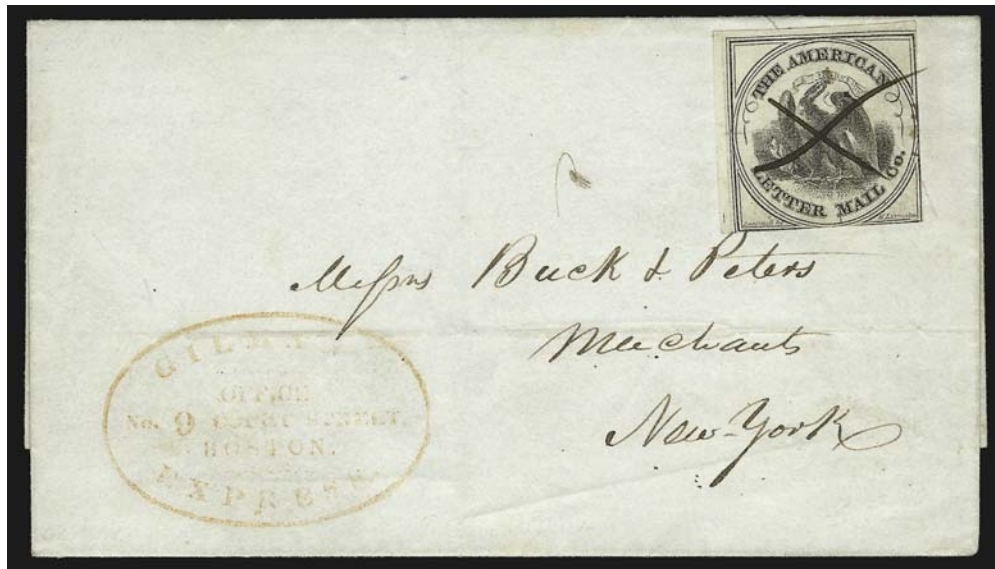 THE AMERICAN
LETTER MAIL Co.
Messrs Buck & Peters
Merchants
New-York
OFFICE
No. 9 COURT STREET
BOSTON.
EXPRESS